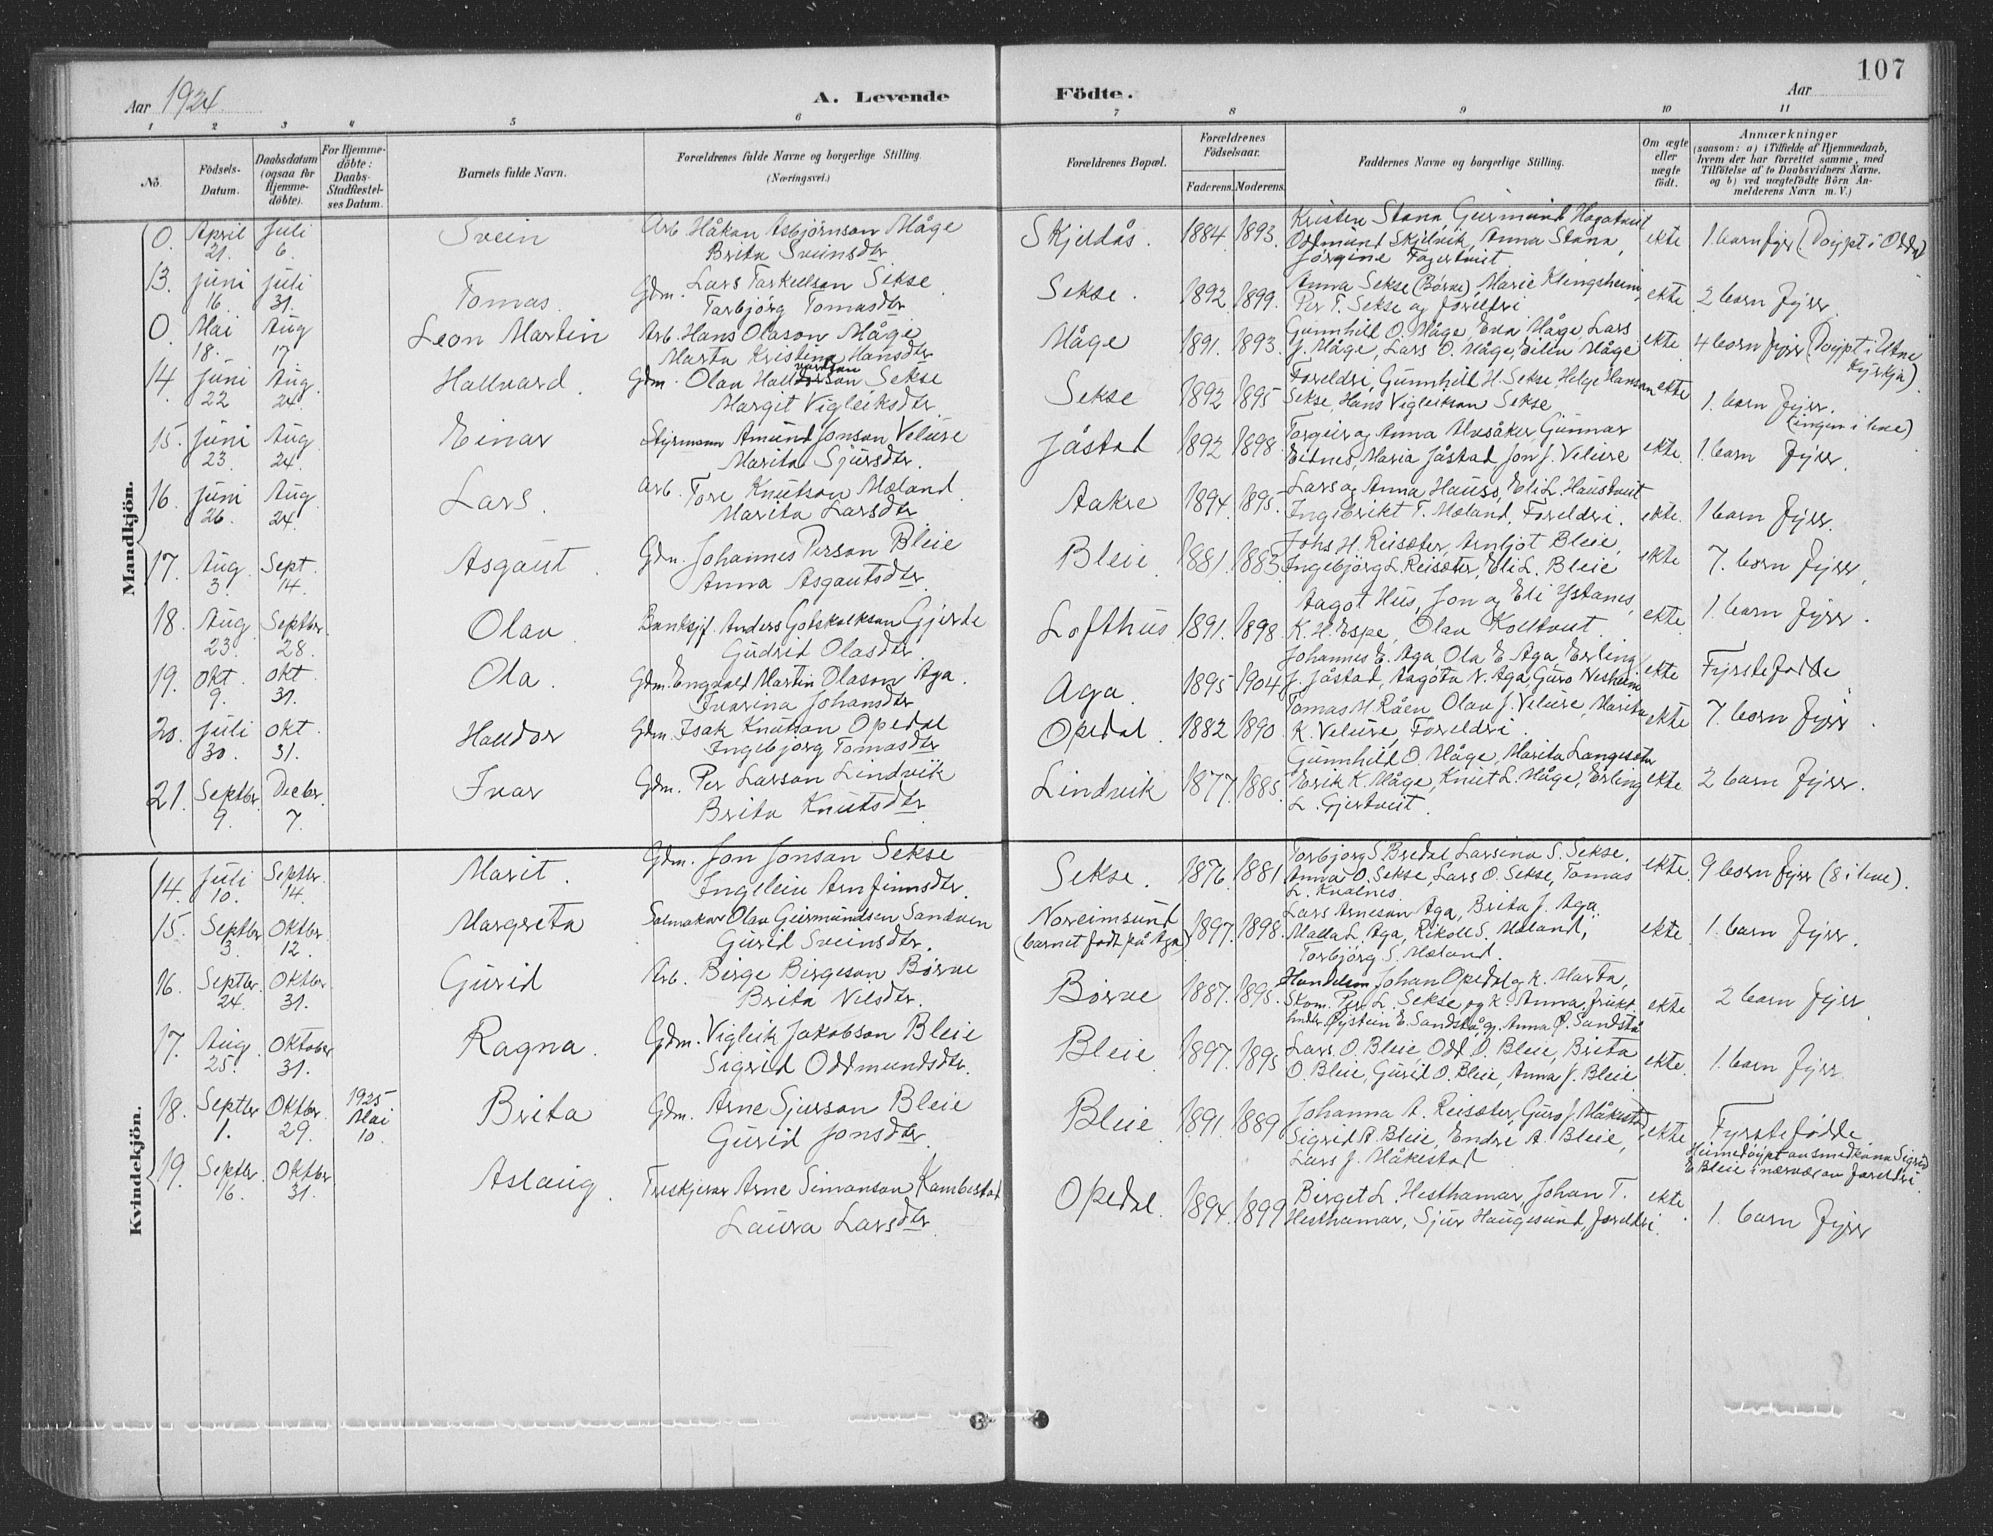 107
Aar 1924
A. Levende
Födte.
Aar
1 2 3 4 5 6 7 8 9 10 11
No.
Födsels-Datum.
Daabsdatum (ogsaa for Hjemme-döbte).
For Hjemme-döbte: Daabs-Stadfæstel-ses Datum.
Barnets fulde Navn.
Forældrenes fulde Navne og borgerlige Stilling.
(Næringsvei.)
Forældrenes Bopæl.
Forældrenes Födselsaar.
Faderens. Moderens.
Faddernes Navne og borgerlige Stilling.
Om ægte eller uægte födt.
Anmærkninger
(saasom: a) i Tilfælde af Hjemmedaab,
hvem der har forrettet samme, med
Tilföielse af to Daabsvidners Navne,
og b) ved uægtefödte Börn An-
melderens Navn m. V.)
Mandkjön.
0. April 21. Juli 6. Svein Arb. Håkon Asbjørnson Måge
Brita Sveinsdtr
Skjeldås. 1884. 1893. Kristen Stana, Geirmund Hagatveit
Oddmund Skjelvik, Anna Stana,
Jørgine Fagertveit
ekte 1. barn fyrr (Døypt i Odda)
13. Juni 16. Juli 31. Tomas. Gdm. Lars Tarkellson Sekse.
Tarbjörg Tomasdtr
Sekse. 1892. 1899. Anna Sekse (Børve), Marie Klingsheim,
Per T. Sekse og foreldri
ekte 2 born fyrr.
0. Mai 18. Aug 17 Leon Martin Arb. Hans Olason Måge
Marta Kristina Hansdtr
Måge 1891. 1893. Gunnhild O. Måge, Eva Måge, Lars
J. Måge, Lars O. Måge, Måge
ekte. 4 born fyrr (Døypt i Utne kyrkja).
14. Juni 22 Aug 24. Hallvard. Gdm. Olav Hallvardson Sekse
Margit Vigleiksdtr.
Sekse 1892 1895 Foreldri, Gunnhild H. Sekse, Helge Hanson
Sekse, Hans Vigleikson Sekse
ekte 1. barn fyrr.
(ingen i live)
15. Juni 23. Aug 24. Einar Styrmann Amund Jonson Velure
Marita Sjursdtr.
Jåstad 1892 1898. Torgeir og Anna Ulvsåker, Gunnar
Eitnes, Maria Jåstad, Jon J. Velure
ekte. 1. barn fyrr.
16. Juni 26. Aug 24. Lars. Arb. Tore Knutson Mæland.
Marita Larsdtr
Aakre 1894. 1895. Lars og Anna Hauso, Eli L. Haustveit
Ingebrikt T. Mæland, Foreldri.
ekte. 1 barn fyrr.
17. Aug 3. Sept. 14. Asgaut. Gdm. Johannes Person Bleie
Anna Asgautsdtr.
Bleie 1881. 1883. Johs H. Reisæter, Arnljot Bleie,
Ingebjörg L. Reisæter, Eli L. Bleie
ekte 7. born fyrr.
18. Aug 23. Septbr. 28. Olav Banksjf. Anders Gotskalkson Gjerde
Gudrid Olasdtr.
Lofthus 1891. 1898 Aagot Hus, Jon og Eli Ystanes,
K. H. Espe, Olav Kolltveit.
ekte. 1. barn fyrr.
19. Okt. 9. Okt. 31. Ola. Gdm. Engvald Martin Olason Aga.
Ivarina Johansdtr
Aga. 1895 1904 Johannes E. Aga, Ola E. Aga, Erling
J. Jåstad, Aagota N. Aga, Guro Nesheim
ekte Fyrstefødde
20. Juli 30. Okt. 31. Halldor Gdm. Isak Knutson Opedal
Ingebjorg Tomasdtr
Opedal. 1882 1890 Tomas M. Råen, Olav J. Velure, Marita
K. Velure, Foreldri.
ekte 7. born fyrr
21. Septbr. 9. Decbr. 7. Ivar Gdm. Per Larson Lindvik
Brita Knutsdtr
Lindvik 1877. 1885. Gunnhild O. Måge, Marita Langeseter
Eirik K. Måge, Knut L. Måge, Erling
L. Gjertveit.
ekte 2 born fyrr.
Kvindekjön.
14. Juli 10. Septbr. 14. Marit. Gdm. Jon Jonson Sekse
Ingeleiv Arnfinnsdtr.
Sekse. 1876. 1881 Torbjörg S. Bredal, Larsina S. Sekse.
Anna O. Sekse, Lars O. Sekse, Tomas
L. Kvalnes.
ekte. 9 born fyrr (8 i live).
15. Septbr 3. Oktbr. 12. Margreta Salmakar Olav Geirmundsen Sandven
Gurid Sveinsdtr.
Noreimsund (barnet født på Aga) 1897. 1898. Lars Arneson Aga, Brita J. Aga,
Malla L. Aga, Rikoll S. Mæland,
Torbjörg S. Mæland.
ekte. 1. barn fyrr.
16. Septbr. 24. Oktbr 31. Gurid Arb. Birge Birgeson Børve
Brita Nilsdtr.
Børve 1887. 1895. Handelsm. Johan Opedal og k. Marta,
Skom. Per L. Sekse og k. Anna, frukt-
handler Øystein E. Sandstå og Anna Ø. Sandstå
ekte 2 born fyrr
17. Aug 25. Oktober 31. Ragna. Gdm. Vigleik Jakobson Bleie
Sigrid Oddmundsdtr.
Bleie 1897. 1895 Lars O. Bleie, Odd O. Bleie, Brita
O. Bleie, Gurid O. Bleie, Anna J. Bleie
ekte. 1. barn fyrr
18. Septbr 1. Oktbr. 29. 1925 Mai 10. Brita Gdm. Arne Sjurson Bleie
Gurid Jonsdtr.
Bleie 1891. 1889 Johanna A. Reisæter, Guro J. Måkestad,
Sigrid A. Bleie, Endre A. Bleie,
Lars J. Måkestad
ekte Fyrstefødde
Heimedøypt av smedkona Sigrid
E. Bleie i nærvær av foreldri.
19. Septbr. 16. Oktbr 31. Aslaug. Treskjerar Arne Simonson Kambestad
Laura Larsdtr.
Opedal. 1894. 1899 Birget L. Hesthamar, Johan T.
Hesthamar, Sjur Haugesund, foreldri.
ekte. 1. barn fyrr